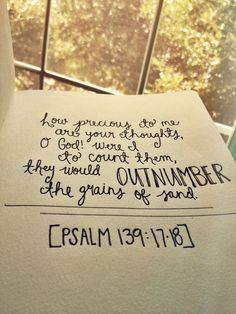 how precious to me
are your thoughts,
O God! were I
to count them,
they would OUTNUMBER
the grains of sand
[PSALM 139:17-18]